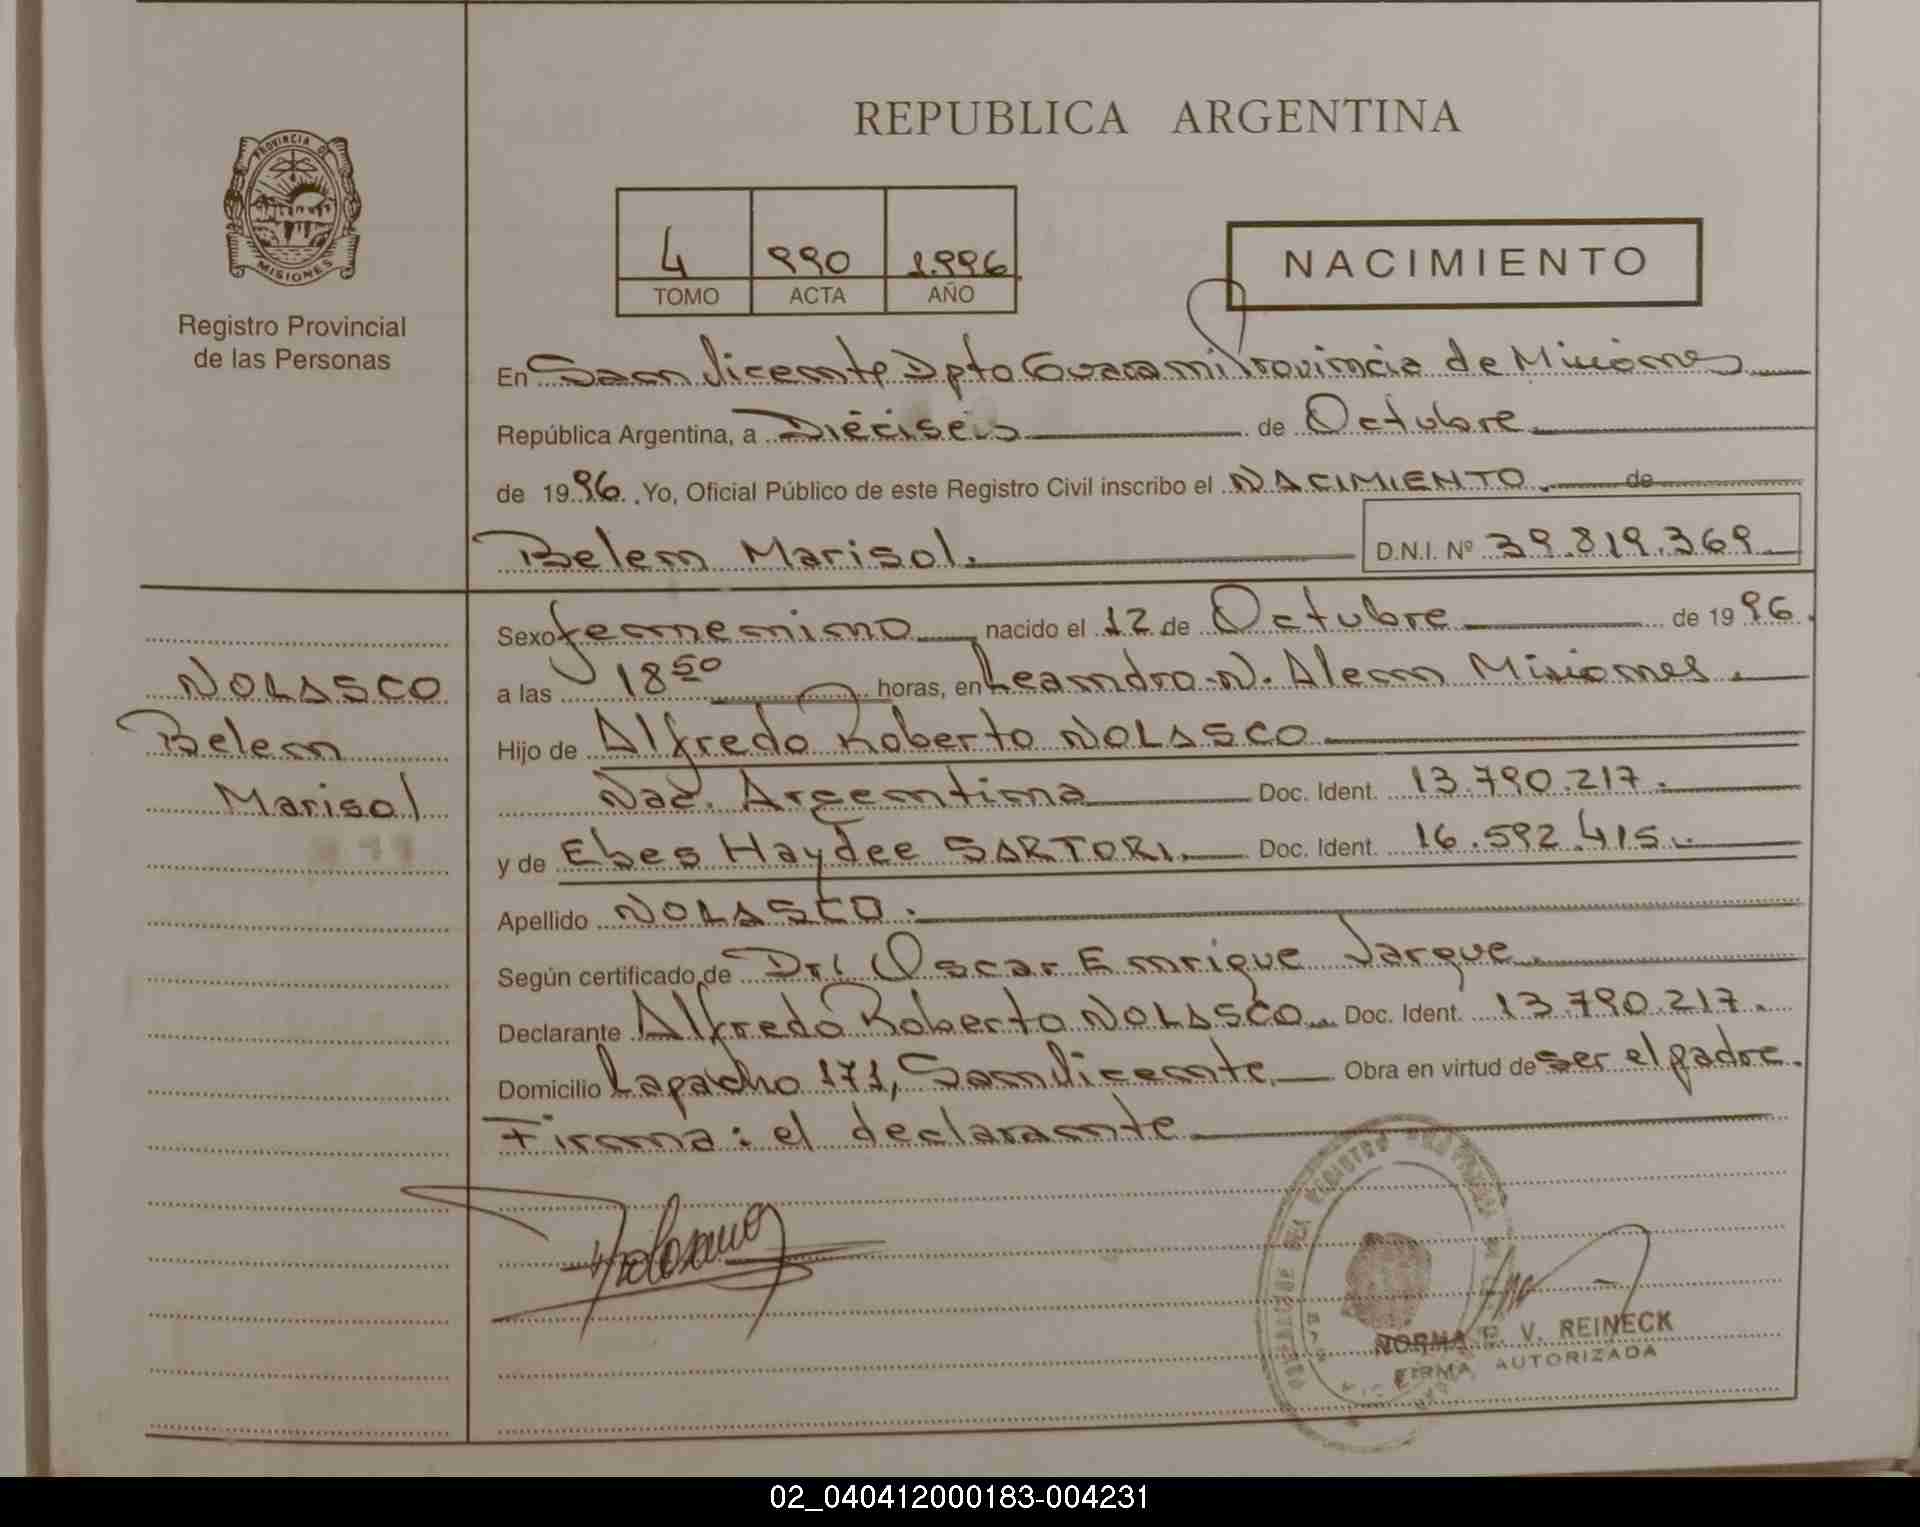 REPUBLICA ARGENTINA
PROVINCIA DE
MISIONES
Registro Provincial
de las Personas
4 990 1.996
TOMO ACTA AÑO
NACIMIENTO
En San Vicente Dpto Guarani Provincia de Misiones
República Argentina, a Dieciseis de Octubre
de 1996. Yo, Oficial Público de este Registro Civil inscribo el NACIMIENTO. de
Belen Marisol. D.N.I. Nº 39.819.369
NOLASCO
Belen
Marisol
Sexo femenino nacido el 12 de Octubre de 1996.
a las 18 50 horas, en Leandro N. Alem Misiones.
Hijo de Alfredo Roberto NOLASCO
Nac. Argentina Doc. Ident. 13.790.217.
y de Ebes Haydee SARTORI. Doc. Ident. 16.592.415.
Apellido NOLASCO.
Según certificado de Dr: Oscar Enrique Jarque.
Declarante Alfredo Roberto NOLASCO Doc. Ident. 13.790.217.
Domicilio Lapacho 171, San Vicente. Obra en virtud de ser el padre.
Firma: el declarante
NORMA V. REINECK
FIRMA AUTORIZADA
02_040412000183-004231